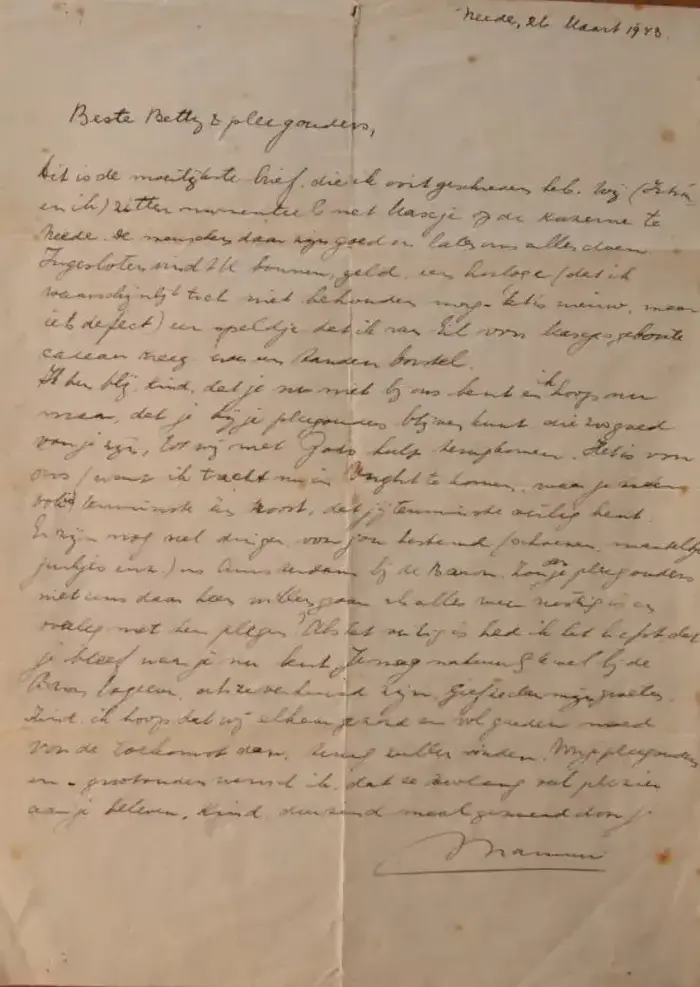 Neede, 26 Maart 1943.
Beste Betty & pleegouders,
Dit is de moeilijkste brief, die ik ooit geschreven heb. Wij
en ik) zitten momenteel met Kaasje op de kazerne te
Neede. De menschen daar zijn goed en laten ons alles doen.
Ingesloten vindt U bonnen, geld, een horloge (dat ik
waarschijnlijk toch niet behouden mag. 't Is nieuw, maar
iets defect) een speldje dat ik van voor Kaasjes geboorte
cadeau kreeg en een tandenborstel.
Ik ben blij, kind, dat je nu niet bij ons bent en ik hoop nu
maar, dat je bij je pleegouders blijven kunt die zoo goed
voor je zijn, tot wij met Gods hulp terugkomen. Het is voor
ons (want ik tracht nu in Vught te komen, waar je
tenminste een troost, dat jij tenminste veilig bent.
Er zijn nog veel dingen voor jou bestemd (schoenen, manteltje,
jurkjes enz.) in Amsterdam bij de Baron. Zouden je pleegouders
niet eens daar heen willen gaan als alles weer rustig is en
overleg met hen plegen? Als het veilig is had ik het liefst dat
je bleef waar je nu bent. Je mag natuurlijk wel bij de
Baron logeeren, als ze verhuisd zijn. Geef ieder mijn groeten.
Kind, ik hoop dat wij elkaar gezond en vol goeden moed
voor de toekomst dan, terug zullen vinden. Je pleegouders
en - grootouders wensch ik, dat ze zoolang veel plezier
aan je beleven. Kind, duizend maal gezoend door je
Mammie